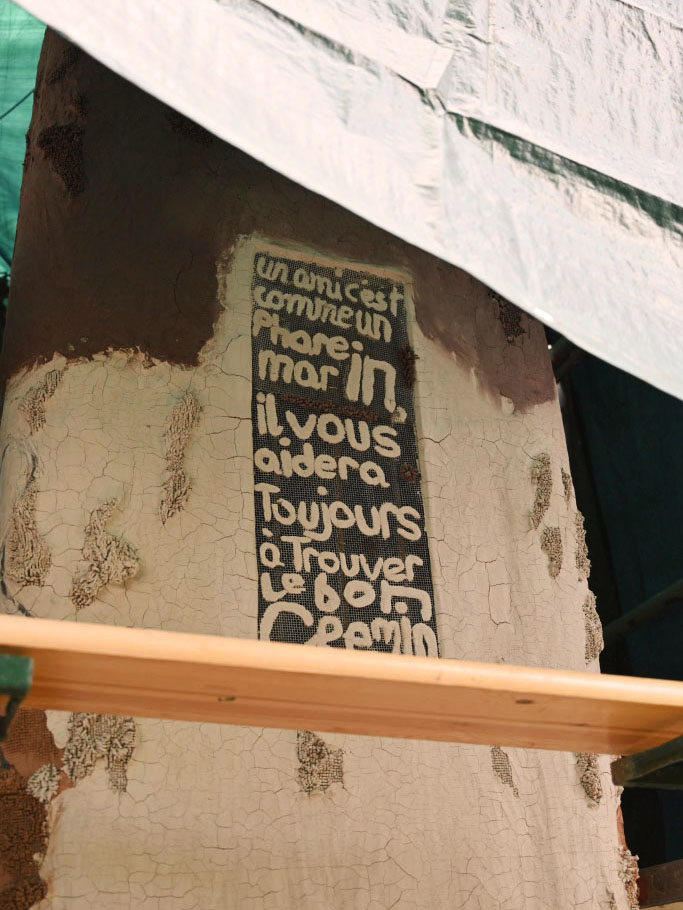 un ami c'est
comme un
Phare
marin,
il vous
aidera
Toujours
à Trouver
Le bon
Chemin